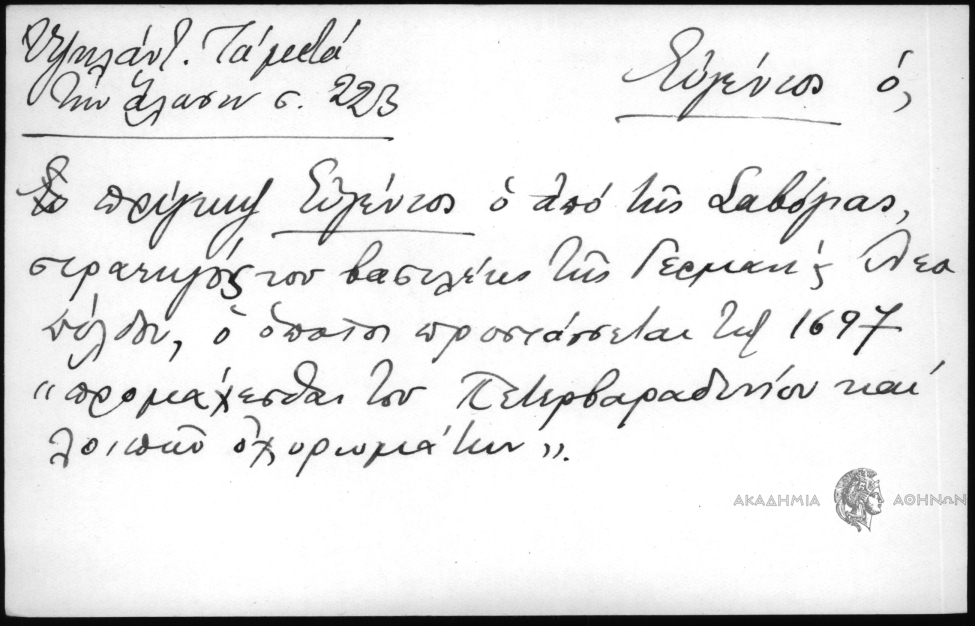 Ὑψηλάντ. Τά μετά
τὴν ἅλωσιν σ. 223
Εὐγένιος ὁ,
Ὁ πρίγκηψ Εὐγένιος ὁ ἀπό τῆς Σαβόϊας,
στρατηγός του βασιλέως τῆς Γερμανίας Λεο
πόλδου, ὁ ὁποῖος προστάσσεται τῷ 1697
"προμάχεσθαι του Πετερβαραδινίου καί
λοιπῶν ὀχυρωμάτων".
ΑΚΑΔΗΜΙΑ ΑΘΗΝΩΝ